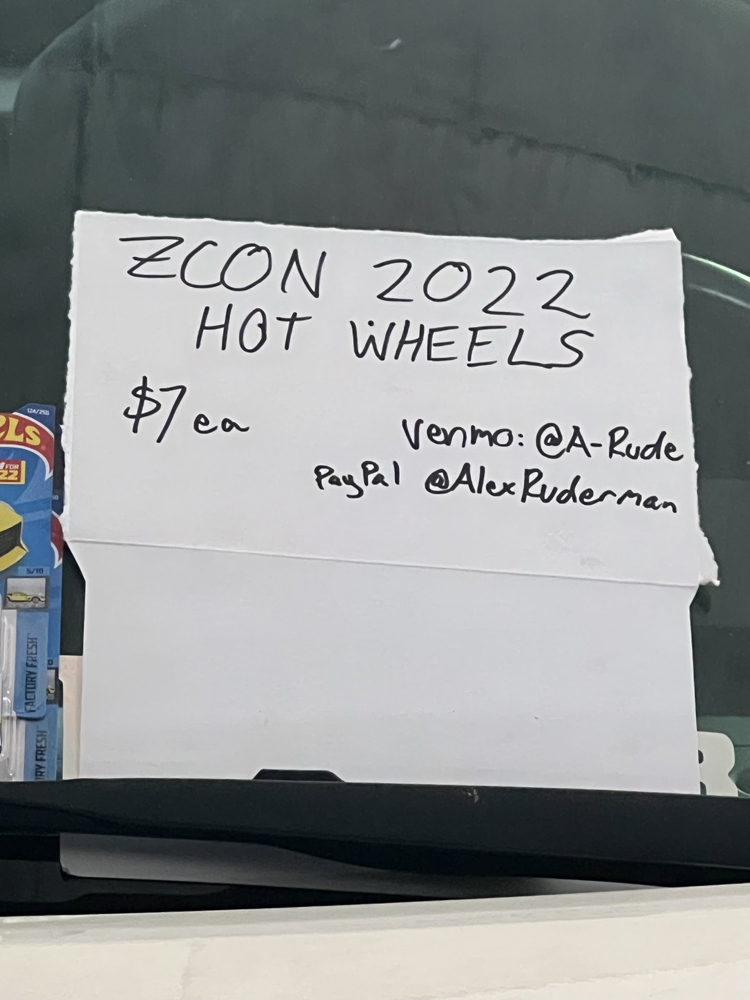 ZCON 2022
HOT WHEELS
$7 ea
Venmo: @A-Rude
PayPal @AlexRuderman
124/250
ELS
FOR
22
5/10
FACTORY FRESH
RY FRESH
R